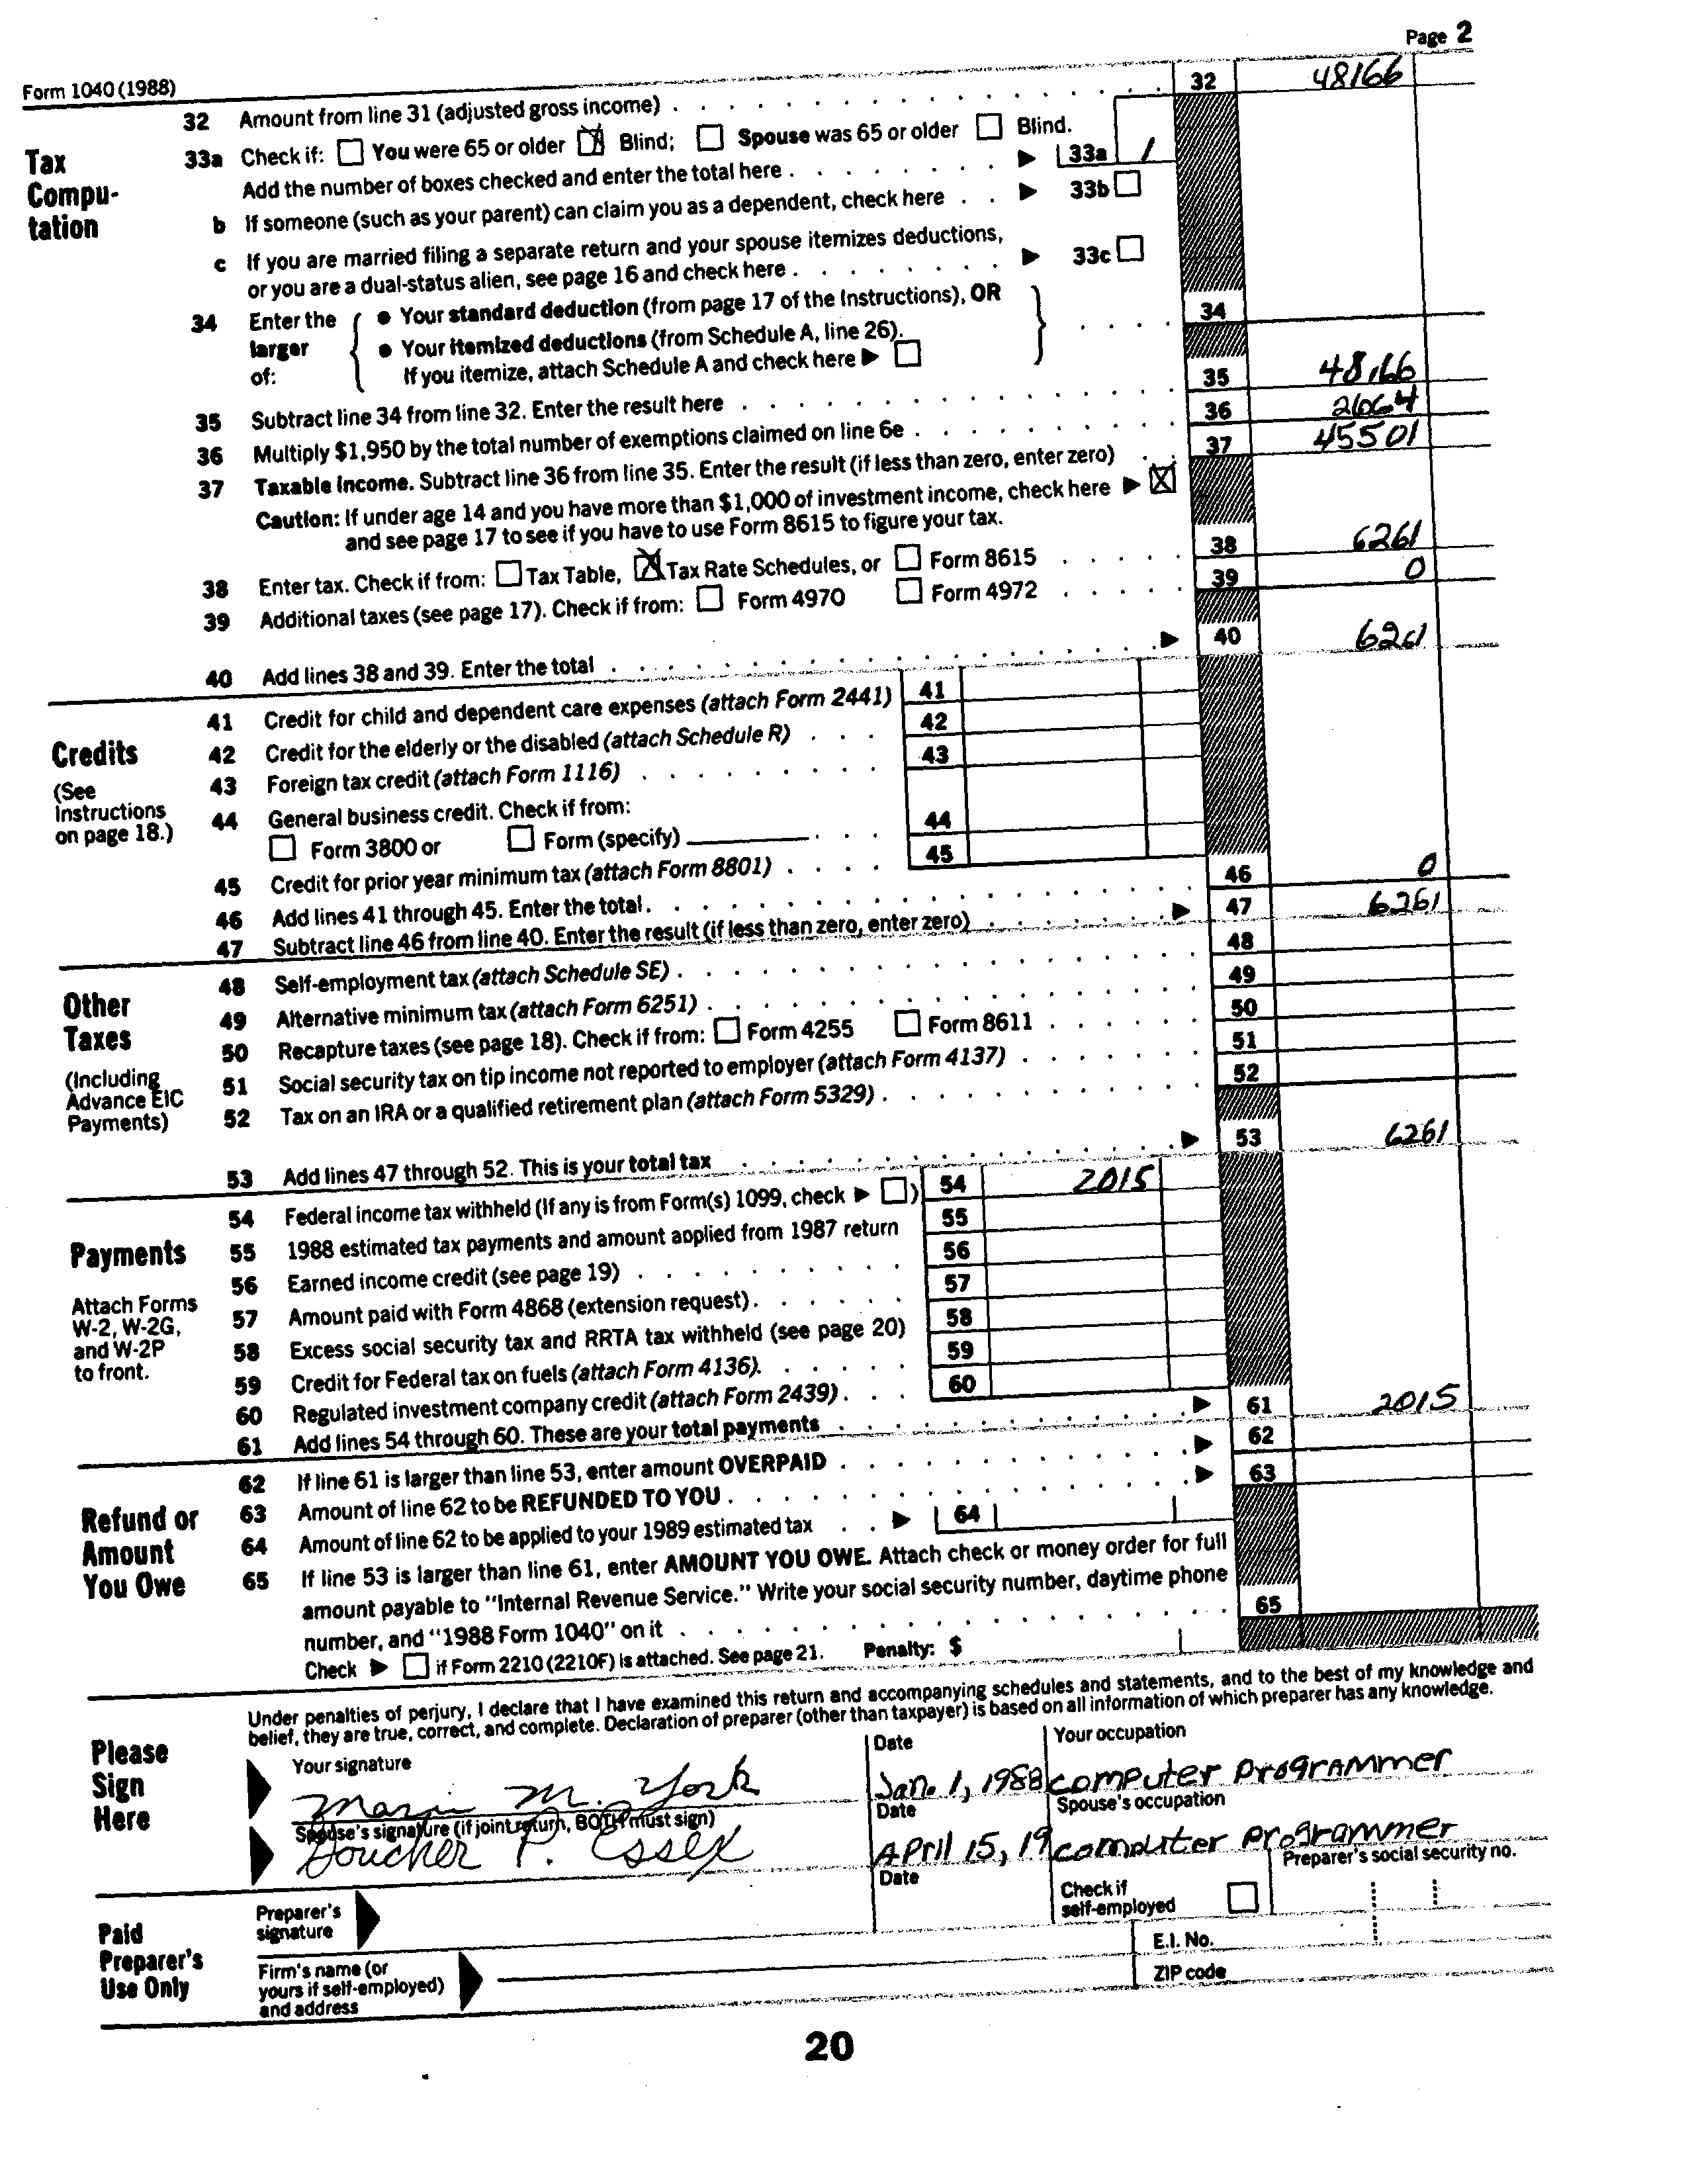 Page 2
Form 1040 (1988)
32 Amount from line 31 (adjusted gross income) 32 48166
Tax Compu-tation
33a Check if: You were 65 or older Blind; Spouse was 65 or older Blind.
Add the number of boxes checked and enter the total here 33a 1
b If someone (such as your parent) can claim you as a dependent, check here 33b
c If you are married filing a separate return and your spouse itemizes deductions,
or you are a dual-status alien, see page 16 and check here 33c
34 Enter the larger of:
• Your standard deduction (from page 17 of the Instructions), OR 34
• Your itemized deductions (from Schedule A, line 26).
If you itemize, attach Schedule A and check here
35 Subtract line 34 from line 32. Enter the result here 35 48166
36 Multiply $1,950 by the total number of exemptions claimed on line 6e 36
37 Taxable income. Subtract line 36 from line 35. Enter the result (if less than zero, enter zero) 37 45501
Caution: If under age 14 and you have more than $1,000 of investment income, check here
and see page 17 to see if you have to use Form 8615 to figure your tax.
38 Enter tax. Check if from: Tax Table, Tax Rate Schedules, or Form 8615 38 6261
39 Additional taxes (see page 17). Check if from: Form 4970 Form 4972 39 0
40 Add lines 38 and 39. Enter the total 40 6261
Credits
(See
Instructions
on page 18.)
41 Credit for child and dependent care expenses (attach Form 2441) 41
42 Credit for the elderly or the disabled (attach Schedule R) 42
43 Foreign tax credit (attach Form 1116) 43
44 General business credit. Check if from:
Form 3800 or Form (specify) 44
45 Credit for prior year minimum tax (attach Form 8801) 45
46 Add lines 41 through 45. Enter the total 46 0
47 Subtract line 46 from line 40. Enter the result (if less than zero, enter zero) 47 6261
Other
Taxes
(Including
Advance EIC
Payments)
48 Self-employment tax (attach Schedule SE) 48
49 Alternative minimum tax (attach Form 6251) 49
50 Recapture taxes (see page 18). Check if from: Form 4255 Form 8611 50
51 Social security tax on tip income not reported to employer (attach Form 4137) 51
52 Tax on an IRA or a qualified retirement plan (attach Form 5329) 52
53 Add lines 47 through 52. This is your total tax 53 6261
Payments
Attach Forms
W-2, W-2G,
and W-2P
to front.
54 Federal income tax withheld (If any is from Form(s) 1099, check ) 54 2015
55 1988 estimated tax payments and amount applied from 1987 return 55
56 Earned income credit (see page 19) 56
57 Amount paid with Form 4868 (extension request) 57
58 Excess social security tax and RRTA tax withheld (see page 20) 58
59 Credit for Federal tax on fuels (attach Form 4136) 59
60 Regulated investment company credit (attach Form 2439) 60
61 Add lines 54 through 60. These are your total payments 61 2015
Refund or
Amount
You Owe
62 If line 61 is larger than line 53, enter amount OVERPAID 62
63 Amount of line 62 to be REFUNDED TO YOU 63
64 Amount of line 62 to be applied to your 1989 estimated tax 64
65 If line 53 is larger than line 61, enter AMOUNT YOU OWE. Attach check or money order for full
amount payable to "Internal Revenue Service." Write your social security number, daytime phone
number, and "1988 Form 1040" on it 65
Check if Form 2210 (2210F) is attached. See page 21. Penalty: $
Please
Sign
Here
Under penalties of perjury, I declare that I have examined this return and accompanying schedules and statements, and to the best of my knowledge and
belief, they are true, correct, and complete. Declaration of preparer (other than taxpayer) is based on all information of which preparer has any knowledge.
Your signature Date Your occupation
M. York Jan. 1, 1988 computer programmer
Spouse's signature (if joint return, BOTH must sign) Date Spouse's occupation
P. Essex April 15, 19 computer programmer
Paid
Preparer's
Use Only
Preparer's
signature
Date
Check if
self-employed
Preparer's social security no.
Firm's name (or
yours if self-employed)
and address
E.I. No.
ZIP code
20